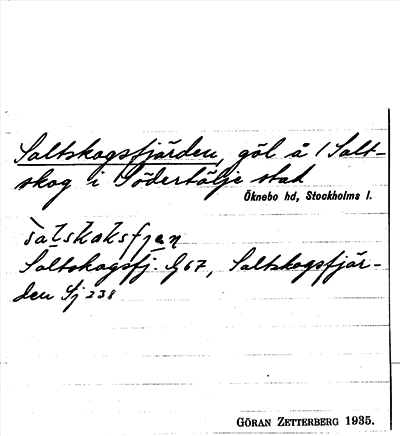 Saltskogsfjärden, göl å 1 Salt-
skog i Södertälje stad
Öknebo hd, Stockholms l.
Saltskogsfj. G 67, Saltskogsfjär-
den Sj 238
GÖRAN ZETTERBERG 1935.